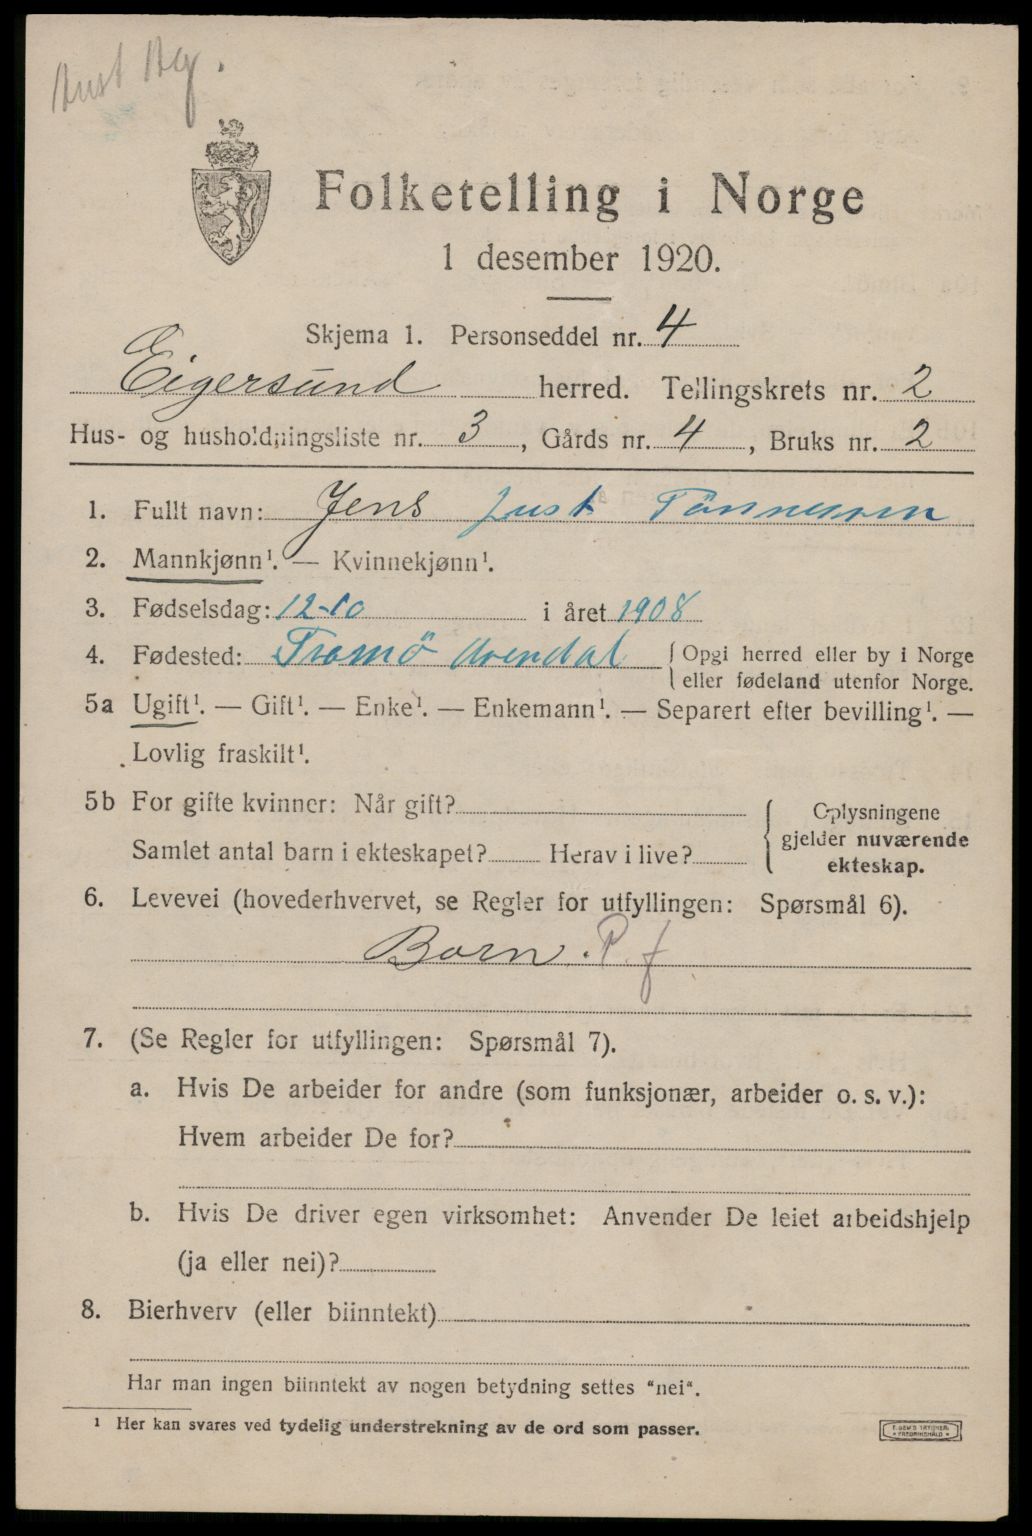 Aust Ag.
Folketelling i Norge
1 desember 1920.
Skjema 1. Personseddel nr. 4
Eigersund herred. Tellingskrets nr. 2
Hus- og husholdningsliste nr. 3, Gårds nr. 4, Bruks nr. 2
1. Fullt navn: Jens Just Tönnessen
2. Mannkjønn¹. — Kvinnekjønn¹.
3. Fødselsdag: 12-10 i året 1908
4. Fødested: Tromö Arendal { Opgi herred eller by i Norge
eller fødeland utenfor Norge.
5a Ugift¹. — Gift¹. — Enke¹. — Enkemann¹. — Separert efter bevilling¹. —
Lovlig fraskilt¹.
5b For gifte kvinner: Når gift?
Samlet antal barn i ekteskapet? Herav i live?
{ Oplysningene
gjelder nuværende
ekteskap.
6. Levevei (hovederhvervet, se Regler for utfyllingen: Spørsmål 6).
Barn. P. f
7. (Se Regler for utfyllingen: Spørsmål 7).
a. Hvis De arbeider for andre (som funksjonær, arbeider o. s. v.):
Hvem arbeider De for?
b. Hvis De driver egen virksomhet: Anvender De leiet arbeidshjelp
(ja eller nei)?
8. Bierhverv (eller biinntekt)
Har man ingen biinntekt av nogen betydning settes "nei".
¹ Her kan svares ved tydelig understrekning av de ord som passer.